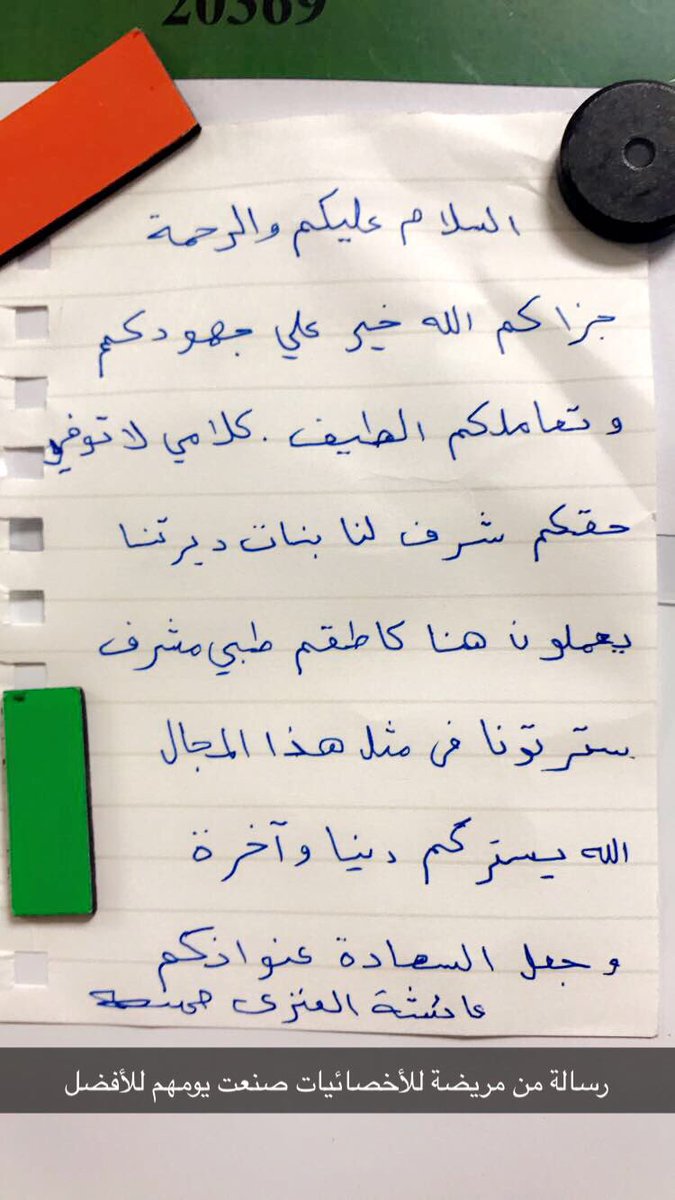 20369
السلام عليكم والرحمة
جزاكم الله خير علي جهودكم
وتعاملكم الطيف . كلامي لا توفي
حقكم شرف لنا بنات ديرتنا
يعملون هنا كاطقم طبي مشرف
سترتونا في مثل هذا المجال
الله يستركم دنيا وآخرة
وجعل السعادة عنوانكم
عائشة العنزى
رسالة من مريضة للأخصائيات صنعت يومهم للأفضل